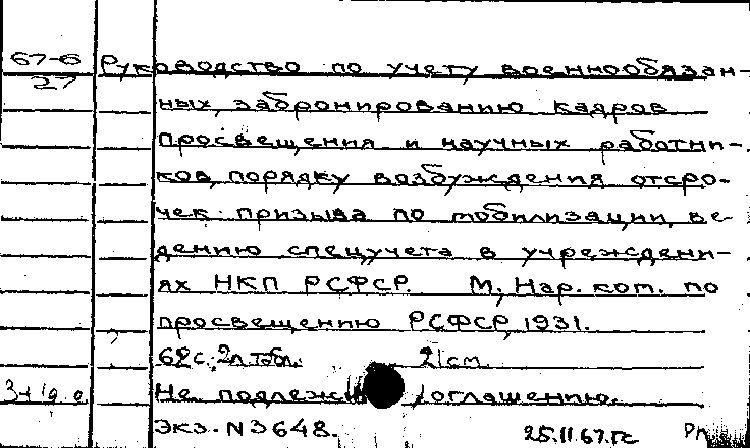 67-6 Руководство по учету военнообязан-
27
ных, забронированию кадров
просвещения и научных работни-
ков, порядку возбуждения отсро-
чек призыва по мобилизации, ве-
дению спецучета в учреждени-
ях НКП РСФСР. М., Нар. ком. по
просвещению РСФСР, 1931.
62 с., 2 л. табл. 21 см.
Не подлежит оглашению.
Экз. N 3648.
25.II.67. гс